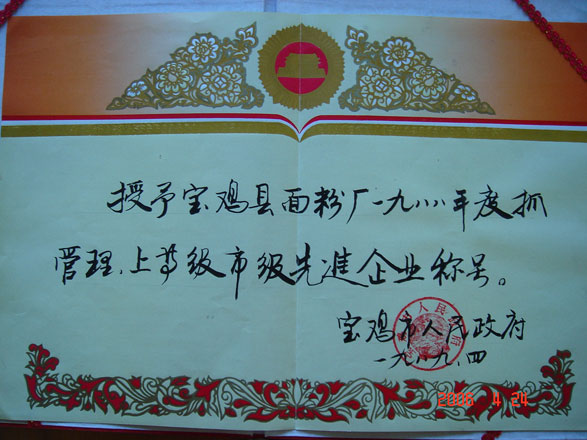 授予宝鸡县面粉厂一九八八年度抓
管理、上等级市级先進企业称号。
宝鸡市人民政府
一九八九、四
2006 4 24